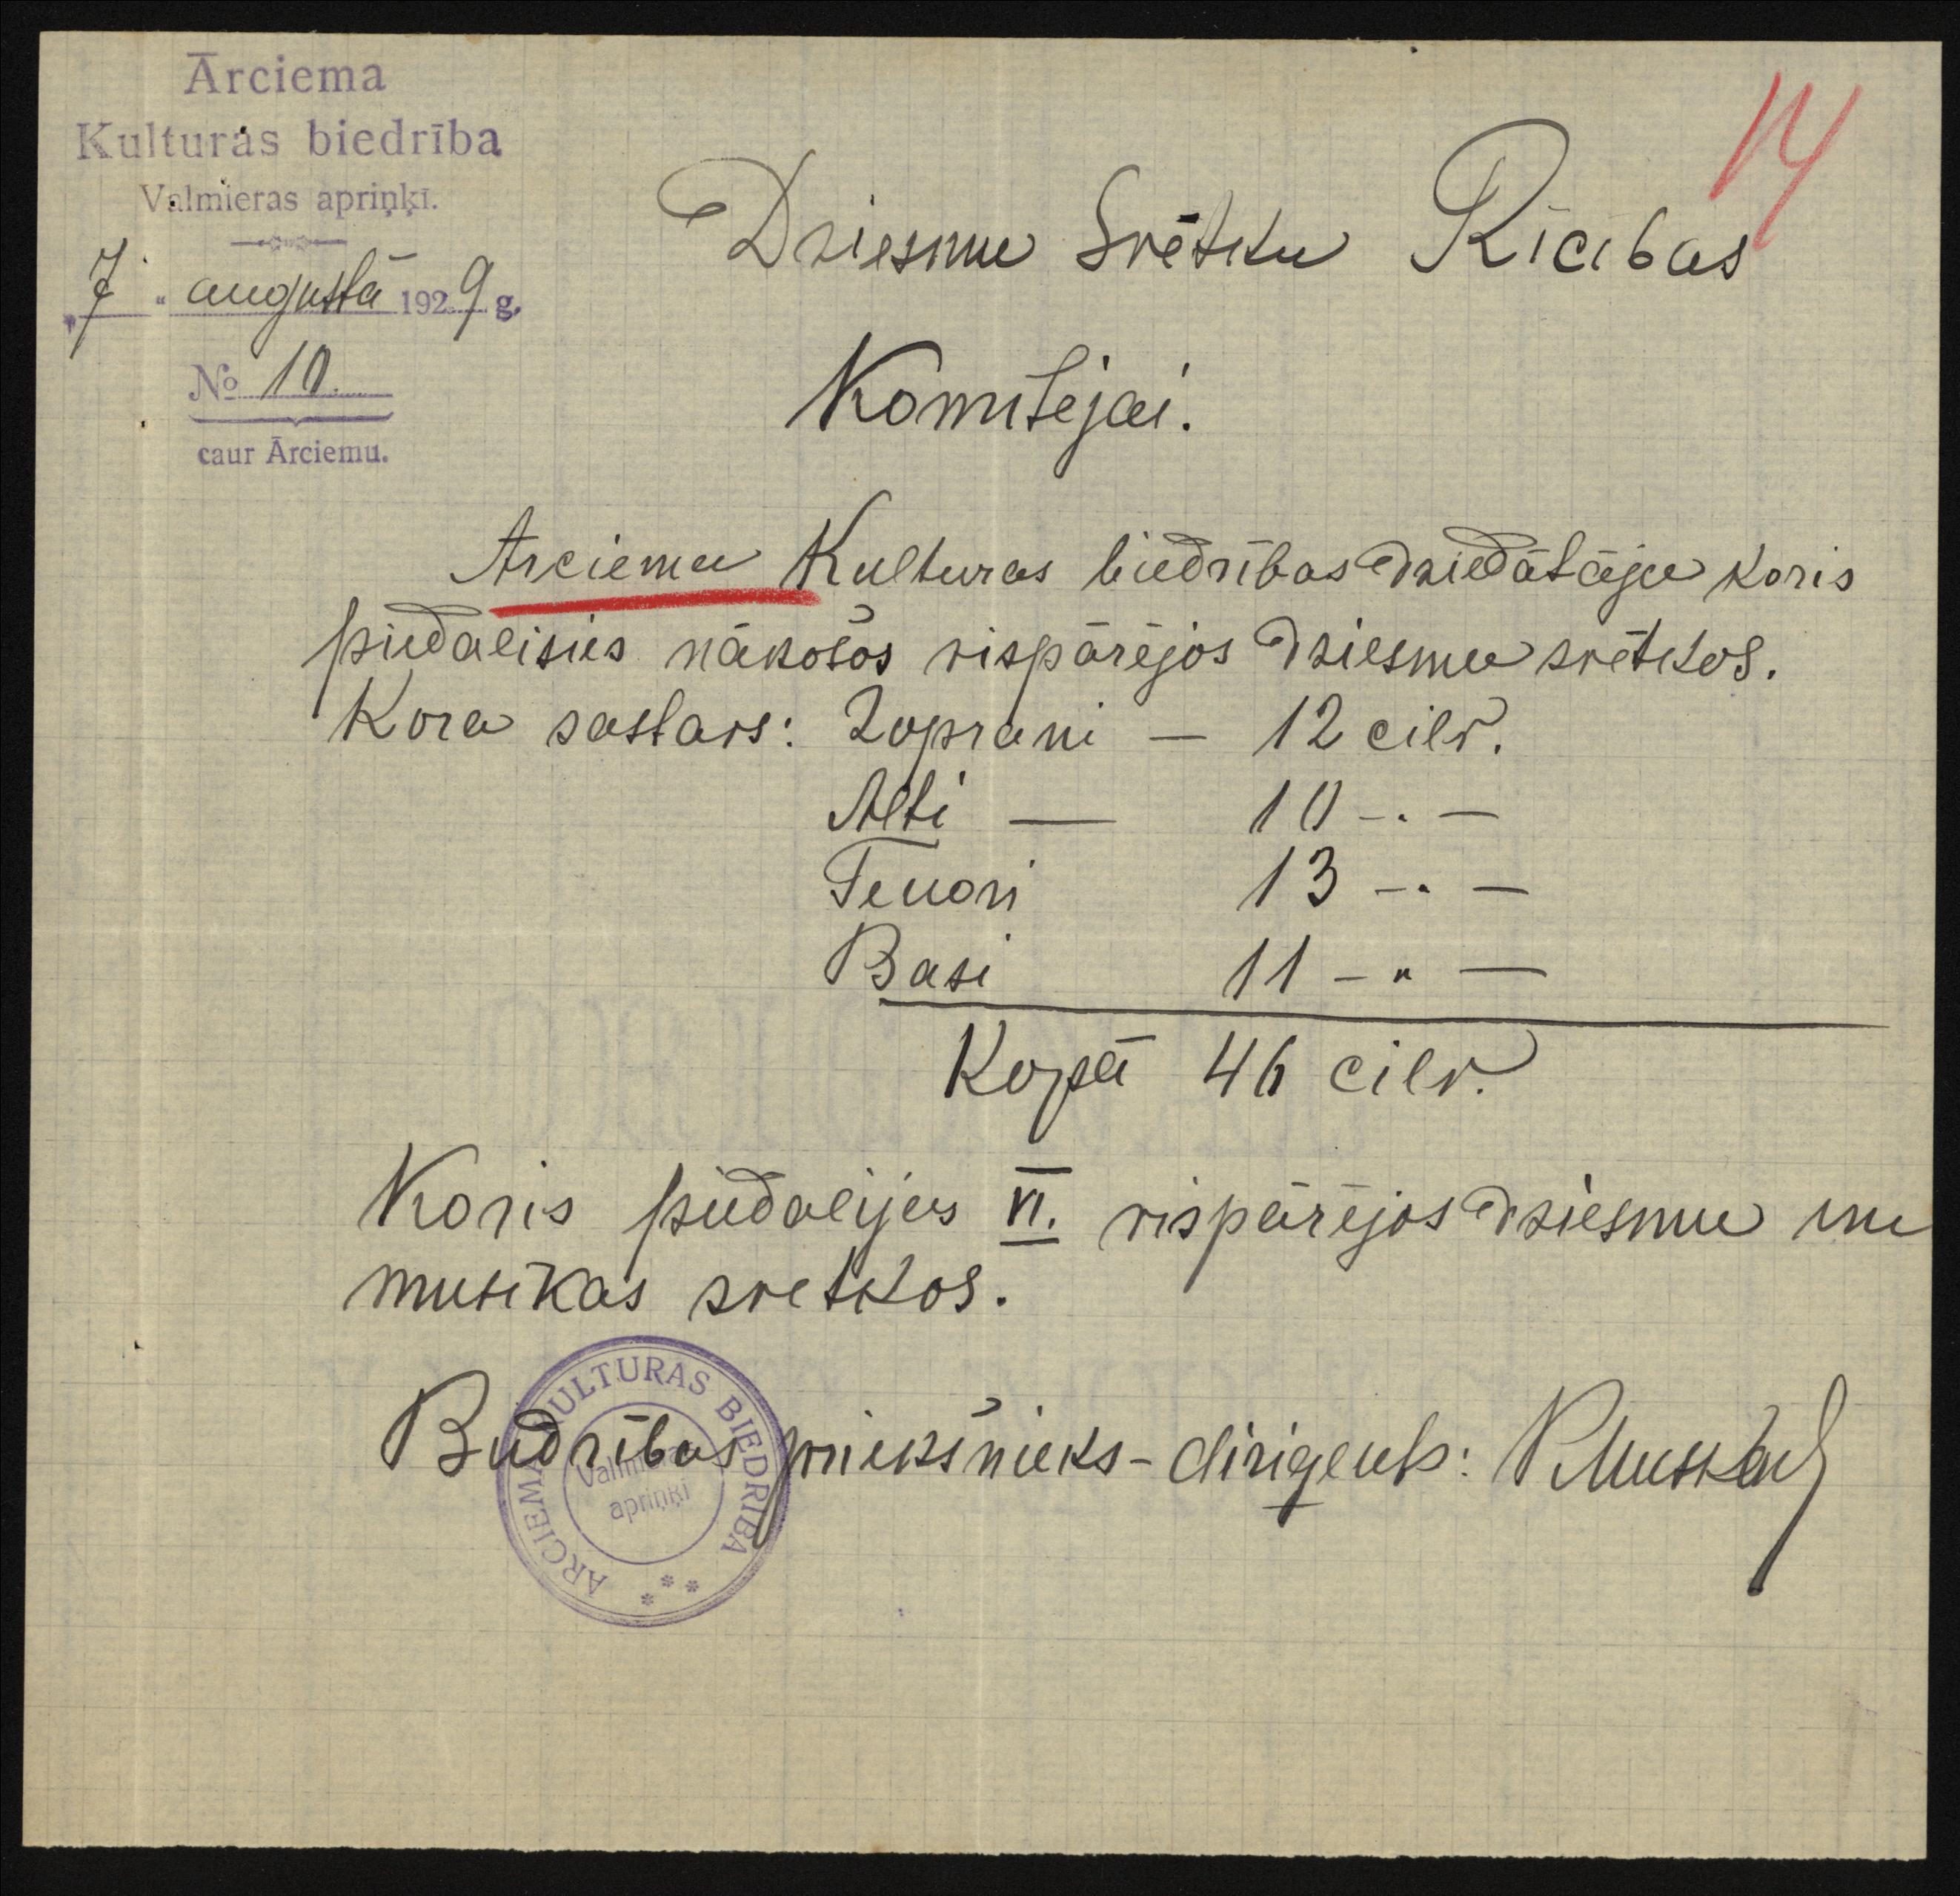 Ārciema
Kulturas biedrība
Valmieras apriņķī.
„7." augustā 1929 g.
№ 10
caur Ārciemu.
14
Dziesmu Svētku Rīcības
Komitejai.
Arciema Kulturas biedrības dziedātāju koris
piedalisies nākošos vispārējos dziesmu svētkos.
Kora sastavs: Zoprani — 12 cilv.
Alti — 10 -.-
Tenori 13 -.-
Basi 11 -"-
Kopā 46 cilv.
Koris piedalijies VI. vispārējos dziesmu un
musikas svetkos.
Biedrības priekšnieks - dirigents:
ĀRCIEMA KULTURAS BIEDRĪBA
Valmieras
apriņķī